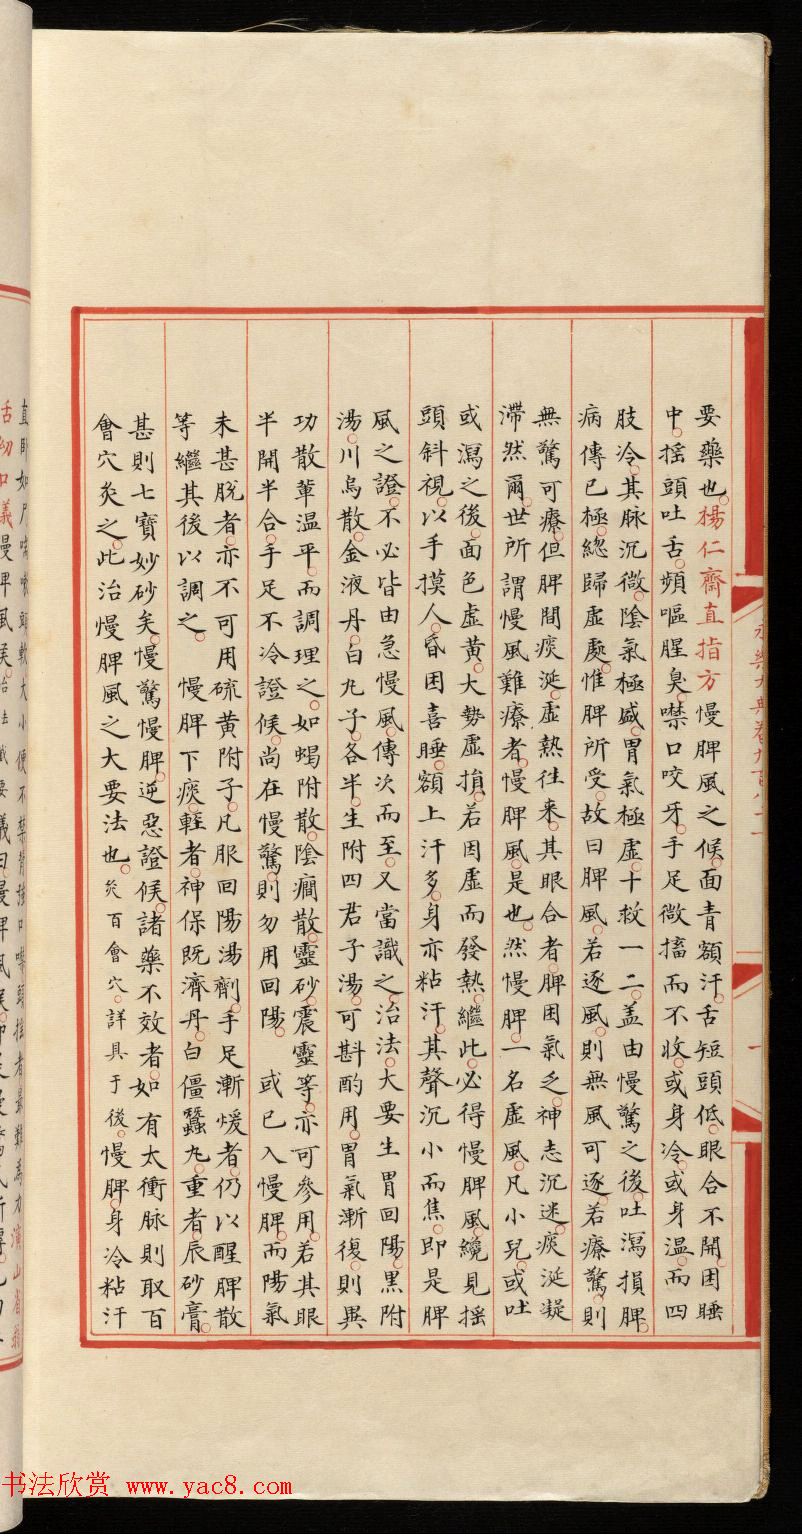 要藥也。楊仁齋直指方慢脾風之候。面青額汗。舌短頭低。眼合不開。困睡
中。搖頭吐舌。頻嘔腥臭。噤口咬牙。手足微搐而不收。或身冷。或身溫。而四
肢冷。其脉沉微。陰氣極盛。胃氣極虛。十救一二。盖由慢驚之後。吐瀉損脾。
病傳已極。緫歸虛處。惟脾所受。故曰脾風。若逐風。則無風可逐。若療驚。則
無驚可療。但脾間痰涎。虛熱往來。其眼合者。脾困氣乏。神志沉迷。痰涎凝
滯然爾。世所謂慢風難療者。慢脾風。是也。然慢脾。一名虛風。凡小兒。或吐
或瀉之後。面色虛黄。大勢虛損。若因虛而發熱。繼此。必得慢脾風。纔見搖
頭斜視。以手摸人。昏困喜睡。額上汗多。身亦粘汗。其聲沉小而焦。即是脾
風之證。不必皆由急慢風。傳次而至。又當識之。治法。大要生胃回陽。黑附
湯。川烏散。金液丹。白丸子。各半。生附四君子湯。可斟酌用。胃氣漸復。則異
功散軰温平。而調理之。如蝎附散。陰癎散。靈砂。震靈等。亦可參用。若其眼
半開半合。手足不冷證候。尚在慢驚。則勿用回陽。 或已入慢脾。而陽氣
未甚脱者。亦不可用硫黄附子。凡服回陽湯劑。手足漸煖者。仍以醒脾散
等繼其後以調之。 慢脾下痰。輕者。神保既濟丹。白僵蠶丸。重者。辰砂膏。
甚則七寶妙砂矣。慢驚慢脾。逆惡證候。諸藥不效者。如有太衝脉則取百
會穴灸之。此治慢脾風之大要法也。灸百會穴。詳具于後。慢脾。身冷粘汗
永樂大典卷九百八十一
书法欣赏 www.yac8.com